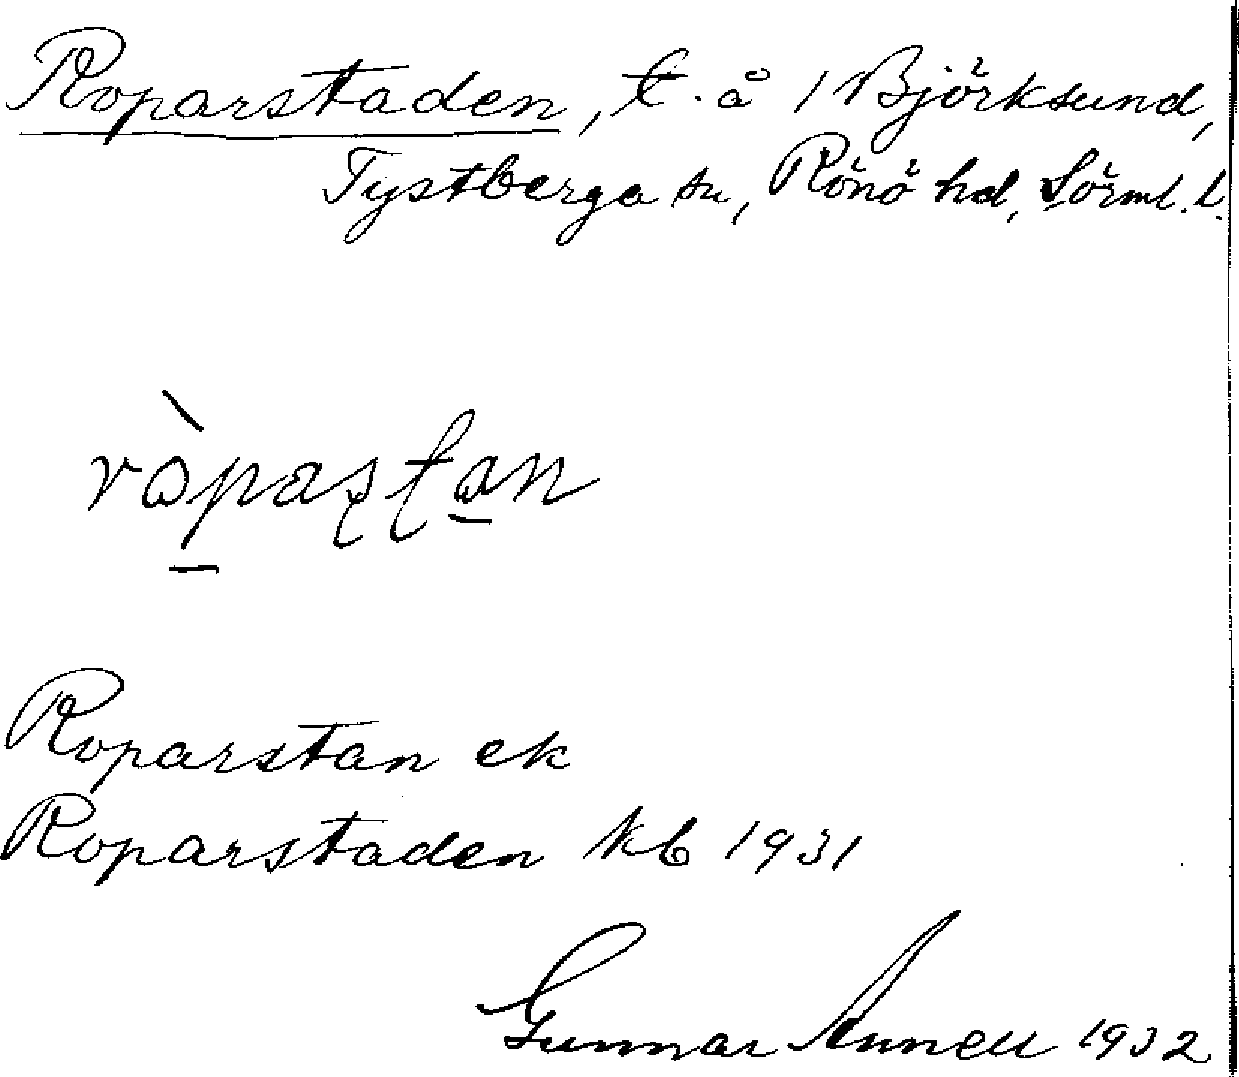 Roparstaden, t. å 1 Björksund,
Tystberga sn, Rönö hd, Sörml. l.
ròpaʂʈan
Roparstan ek
Roparstaden kb 1931
Gunnar Annell 1932